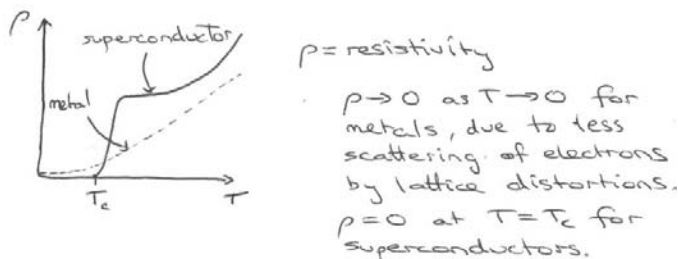 ρ
superconductor
metal
T_c
T
ρ = resistivity
ρ → 0 as T → 0 for
metals, due to less
scattering of electrons
by lattice distortions.
ρ = 0 at T = T_c for
superconductors.